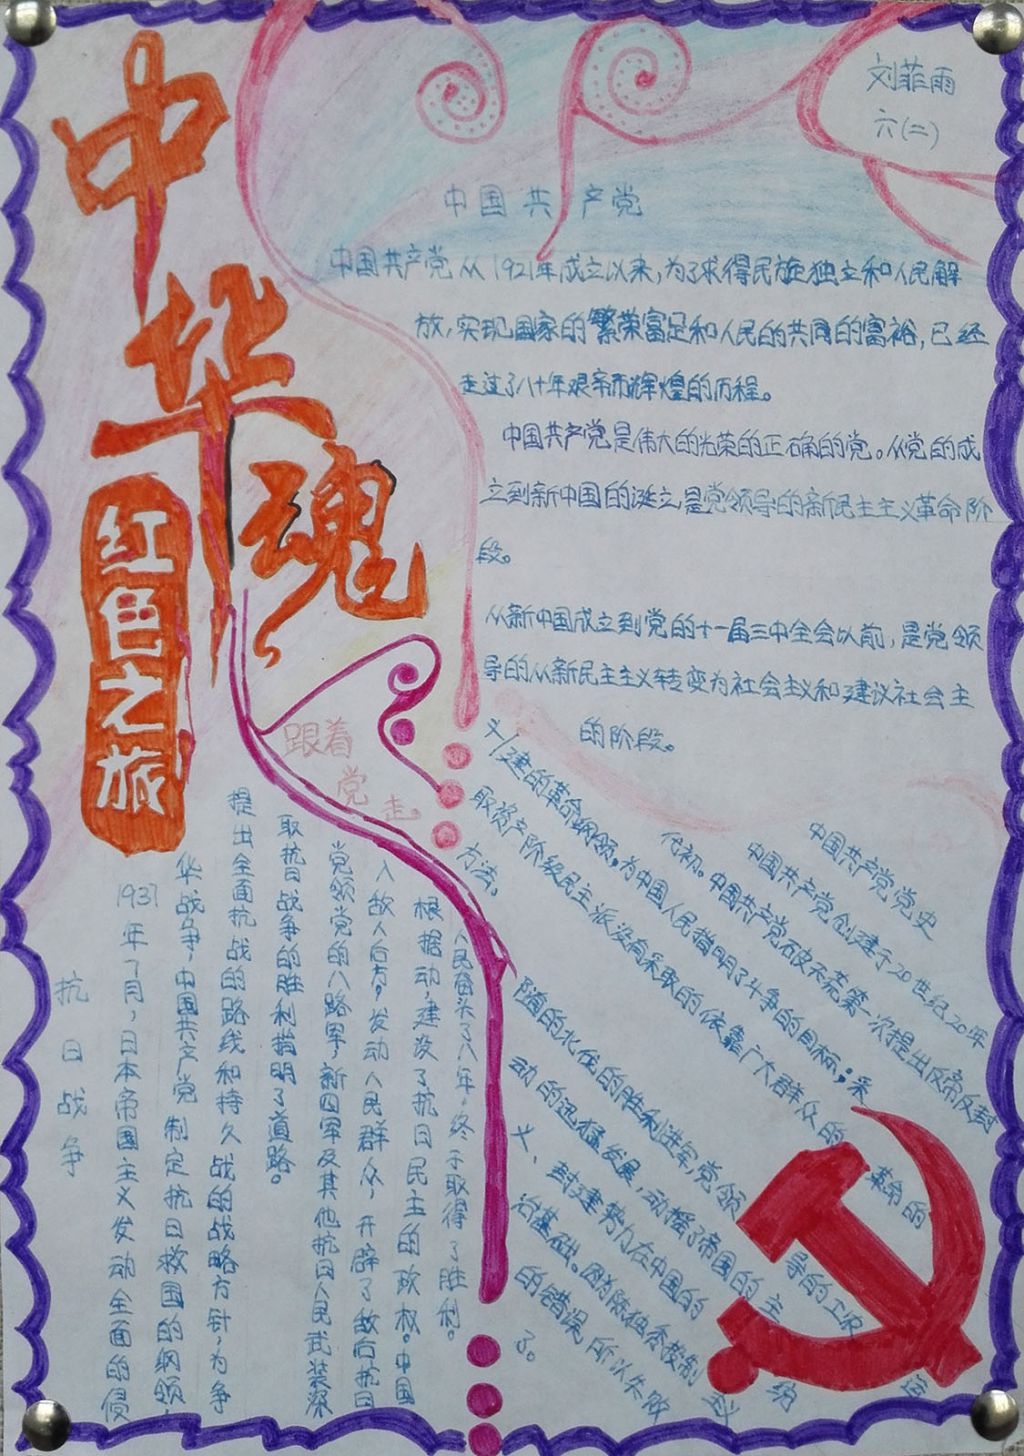 中华魂
红色之旅
刘菲雨
六(二)
中国共产党
中国共产党从1921年成立以来,为了求得民族独立和人民解
放,实现国家的繁荣富足和人民的共同的富裕,已经
走过了八十年艰帝而辉煌的历程。
中国共产党是伟大的光荣的正确的党。从党的成
立到新中国的诞立,是党领导的新民主主义革命阶
段。
从新中国成立到党的十一届三中全会以前,是党领
导的从新民主主义转变为社会主义和建议社会主
义/建的革命纲领,为中国人民指明了斗争的目标;采
的阶段。
跟着
党
走。
中国共产党党史
中国共产党创建于20世纪20年
代初。中国共产党破天荒第一次提出反帝反封
取资产阶级民主派没有采取的依靠广大群众的革命的
方法。
随的北伐的胜利进军,党领导的工农
动的迅猛发展,动摇了帝国的主
义、封建势力在中国的
治基础。
的错误,所以失败
了。
抗日战争
1937年7月,日本帝国主义发动全面的侵
华战争,中国共产党制定抗日救国的纲领
提出全面抗战的路线和持久战的战略方针,为争
取抗日战争的胜利指明了道路。
党领党的八路军,新四军及其他抗日人民武装深
入敌人后方,发动人民群众,开辟了敌后抗日
根据动,建设了抗日民主的政权。中国
人民奋头了八年,终于取得了胜利。